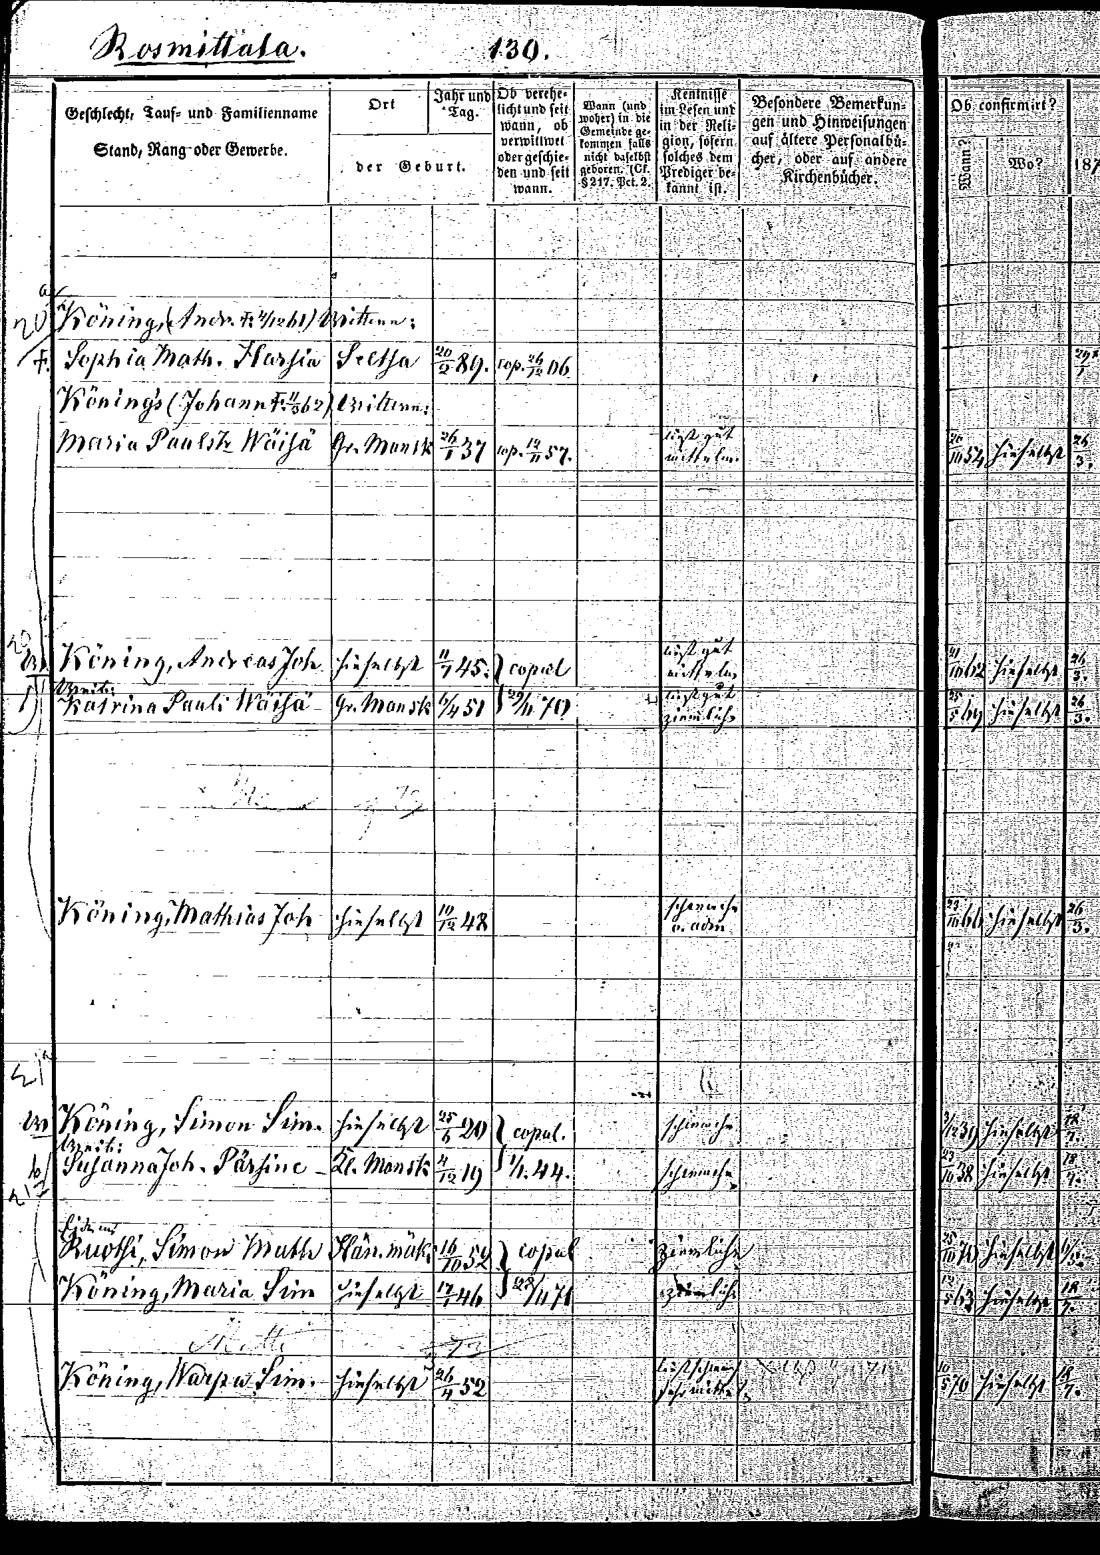 Rosmittala. 130.
Geschlecht, Tauf- und Familienname
Stand, Rang oder Gewerbe.
Ort
der Geburt.
Jahr und
Tag.
Ob verehe-
licht und seit
wann, ob
verwittwet
oder geschie-
den und seit
wann.
Wann (und
woher) in die
Gemeinde ge-
kommen falls
nicht daselbst
geboren. (Cf.
§ 217. Pct. 2.
Kentnisse
im Lesen und
in der Reli-
gion, sofern
solches dem
Prediger be-
kannt ist.
Besondere Bemerkun-
gen und Hinweisungen
auf ältere Personalbü-
cher, oder auf andere
Kirchenbücher.
Ob confirmirt?
Wann? Wo? 187
Köning, (Andr. †. 61) Wittwe:
†. Sophia Math. Hursia Seltsa 20/2 89. cop. 26/12 06
Könings (Johann †. 11/3 62) Wittwe:
Maria Paulst. Wäisä Gr. Monsk 26/1 37 cop. 12/11 57. liest gut mittelm. 20/10 54 hieselbst 26/3.
Köning, Andreas Joh. hieselbst 11/7 45. copul liest gut mittelm. hieselbst 26/3.
Weib:
Katrina Pauli Wäisä Gr. Monsk 6/4 51 29/11 70 liest gut ziemlich 25/5 69 hieselbst 26/3.
Köning, Mathias Joh hieselbst 10/12 48 schwach 23/10 66 hieselbst 26/3.
21
Köning, Simon Sim. hieselbst 25/5 20 copul. schwach 39 hieselbst 18/7.
Weib:
Susanna Joh. Pärsine Kl. Monsk 4/12 19 1/1. 44. schwach 23/10 38 hieselbst 18/7.
Ruothi, Simon Math Hänimäk. 16/10 52 copul ziemlich hieselbst
Köning, Maria Sim hieselbst 17/1 46 28/11 71 ziemlich hieselbst 18/7.
Köning, Warpu Sim. hieselbst 26/4 52 10/5 70 hieselbst 18/7.